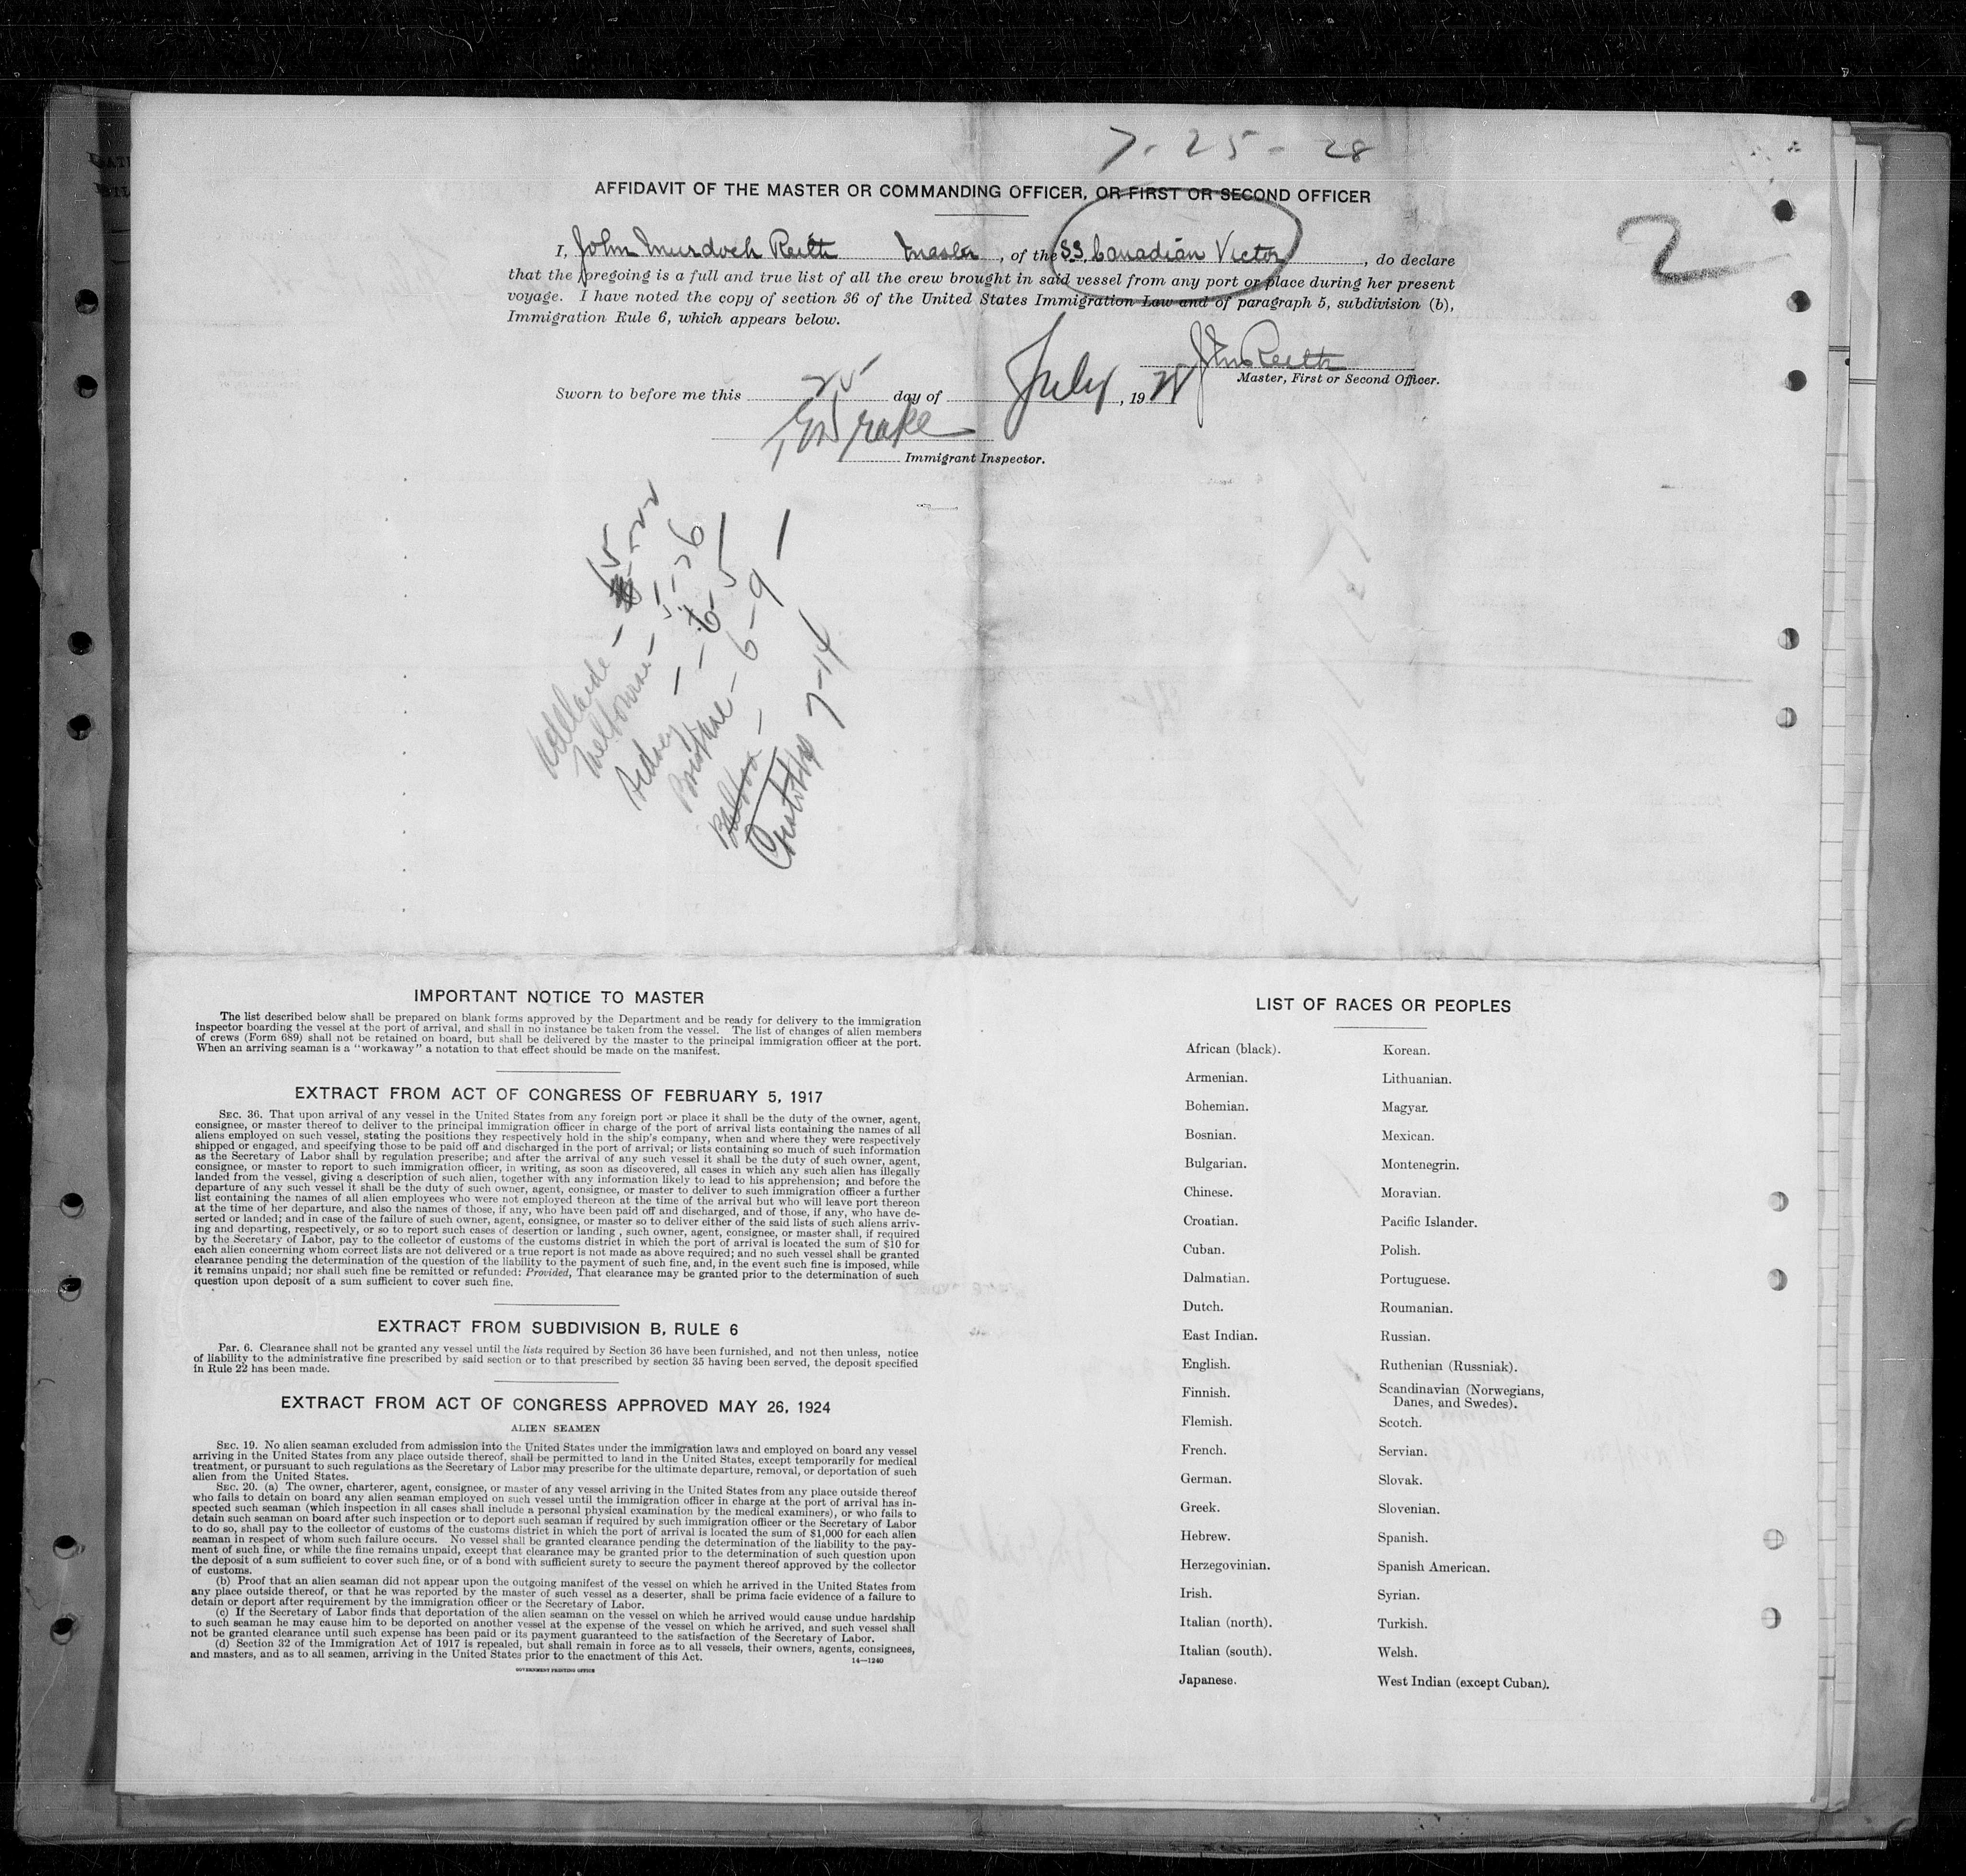 7-25-28
AFFIDAVIT OF THE MASTER OR COMMANDING OFFICER, OR FIRST OR SECOND OFFICER
2
I, John Murdoch Reith Master, of the SS. Canadian Victor, do declare
that the foregoing is a full and true list of all the crew brought in said vessel from any port or place during her present
voyage. I have noted the copy of section 36 of the United States Immigration Law and of paragraph 5, subdivision (b),
Immigration Rule 6, which appears below.
Jno Reith
Master, First or Second Officer.
Sworn to before me this 25 day of July, 1928
Drake
Immigrant Inspector.
Adelaide - 5-22
Melbourne - 5-26
Sidney - - 6-5
Brisbane - 6-9
Balboa -
Cristobal 7-14
IMPORTANT NOTICE TO MASTER
The list described below shall be prepared on blank forms approved by the Department and be ready for delivery to the immigration
inspector boarding the vessel at the port of arrival, and shall in no instance be taken from the vessel. The list of changes of alien members
of crews (Form 689) shall not be retained on board, but shall be delivered by the master to the principal immigration officer at the port.
When an arriving seaman is a "workaway" a notation to that effect should be made on the manifest.
EXTRACT FROM ACT OF CONGRESS OF FEBRUARY 5, 1917
SEC. 36. That upon arrival of any vessel in the United States from any foreign port or place it shall be the duty of the owner, agent,
consignee, or master thereof to deliver to the principal immigration officer in charge of the port of arrival lists containing the names of all
aliens employed on such vessel, stating the positions they respectively hold in the ship's company, when and where they were respectively
shipped or engaged, and specifying those to be paid off and discharged in the port of arrival; or lists containing so much of such information
as the Secretary of Labor shall by regulation prescribe; and after the arrival of any such vessel it shall be the duty of such owner, agent,
consignee, or master to report to such immigration officer, in writing, as soon as discovered, all cases in which any such alien has illegally
landed from the vessel, giving a description of such alien, together with any information likely to lead to his apprehension; and before the
departure of any such vessel it shall be the duty of such owner, agent, consignee, or master to deliver to such immigration officer a further
list containing the names of all alien employees who were not employed thereon at the time of the arrival but who will leave port thereon
at the time of her departure, and also the names of those, if any, who have been paid off and discharged, and of those, if any, who have de-
serted or landed; and in case of the failure of such owner, agent, consignee, or master so to deliver either of the said lists of such aliens arriv-
ing and departing, respectively, or so to report such cases of desertion or landing, such owner, agent, consignee, or master shall, if required
by the Secretary of Labor, pay to the collector of customs of the customs district in which the port of arrival is located the sum of $10 for
each alien concerning whom correct lists are not delivered or a true report is not made as above required; and no such vessel shall be granted
clearance pending the determination of the question of the liability to the payment of such fine, and, in the event such fine is imposed, while
it remains unpaid; nor shall such fine be remitted or refunded: Provided, That clearance may be granted prior to the determination of such
question upon deposit of a sum sufficient to cover such fine.
EXTRACT FROM SUBDIVISION B, RULE 6
Par. 6. Clearance shall not be granted any vessel until the lists required by Section 36 have been furnished, and not then unless, notice
of liability to the administrative fine prescribed by said section or to that prescribed by section 35 having been served, the deposit specified
in Rule 22 has been made.
EXTRACT FROM ACT OF CONGRESS APPROVED MAY 26, 1924
ALIEN SEAMEN
SEC. 19. No alien seaman excluded from admission into the United States under the immigration laws and employed on board any vessel
arriving in the United States from any place outside thereof, shall be permitted to land in the United States, except temporarily for medical
treatment, or pursuant to such regulations as the Secretary of Labor may prescribe for the ultimate departure, removal, or deportation of such
alien from the United States.
SEC. 20. (a) The owner, charterer, agent, consignee, or master of any vessel arriving in the United States from any place outside thereof
who fails to detain on board any alien seaman employed on such vessel until the immigration officer in charge at the port of arrival has in-
spected such seaman (which inspection in all cases shall include a personal physical examination by the medical examiners), or who fails to
detain such seaman on board after such inspection or to deport such seaman if required by such immigration officer or the Secretary of Labor
to do so, shall pay to the collector of customs of the customs district in which the port of arrival is located the sum of $1,000 for each alien
seaman in respect of whom such failure occurs. No vessel shall be granted clearance pending the determination of the liability to the pay-
ment of such fine, or while the fine remains unpaid, except that clearance may be granted prior to the determination of such question upon
the deposit of a sum sufficient to cover such fine, or of a bond with sufficient surety to secure the payment thereof approved by the collector
of customs.
(b) Proof that an alien seaman did not appear upon the outgoing manifest of the vessel on which he arrived in the United States from
any place outside thereof, or that he was reported by the master of such vessel as a deserter, shall be prima facie evidence of a failure to
detain or deport after requirement by the immigration officer or the Secretary of Labor.
(c) If the Secretary of Labor finds that deportation of the alien seaman on the vessel on which he arrived would cause undue hardship
to such seaman he may cause him to be deported on another vessel at the expense of the vessel on which he arrived, and such vessel shall
not be granted clearance until such expense has been paid or its payment guaranteed to the satisfaction of the Secretary of Labor.
(d) Section 32 of the Immigration Act of 1917 is repealed, but shall remain in force as to all vessels, their owners, agents, consignees,
and masters, and as to all seamen, arriving in the United States prior to the enactment of this Act.
14—1240
GOVERNMENT PRINTING OFFICE
LIST OF RACES OR PEOPLES
African (black). Korean.
Armenian. Lithuanian.
Bohemian. Magyar.
Bosnian. Mexican.
Bulgarian. Montenegrin.
Chinese. Moravian.
Croatian. Pacific Islander.
Cuban. Polish.
Dalmatian. Portuguese.
Dutch. Roumanian.
East Indian. Russian.
English. Ruthenian (Russniak).
Finnish. Scandinavian (Norwegians,
Danes, and Swedes).
Flemish. Scotch.
French. Servian.
German. Slovak.
Greek. Slovenian.
Hebrew. Spanish.
Herzegovinian. Spanish American.
Irish. Syrian.
Italian (north). Turkish.
Italian (south). Welsh.
Japanese. West Indian (except Cuban).